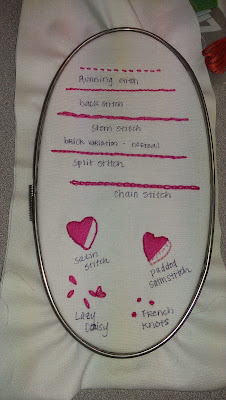 Running stitch
back stitch
Stem stitch
brick variation - normal
Split stitch
Chain stitch
satin
stitch
padded
satin stitch
Lazy
Daisy
French
Knots